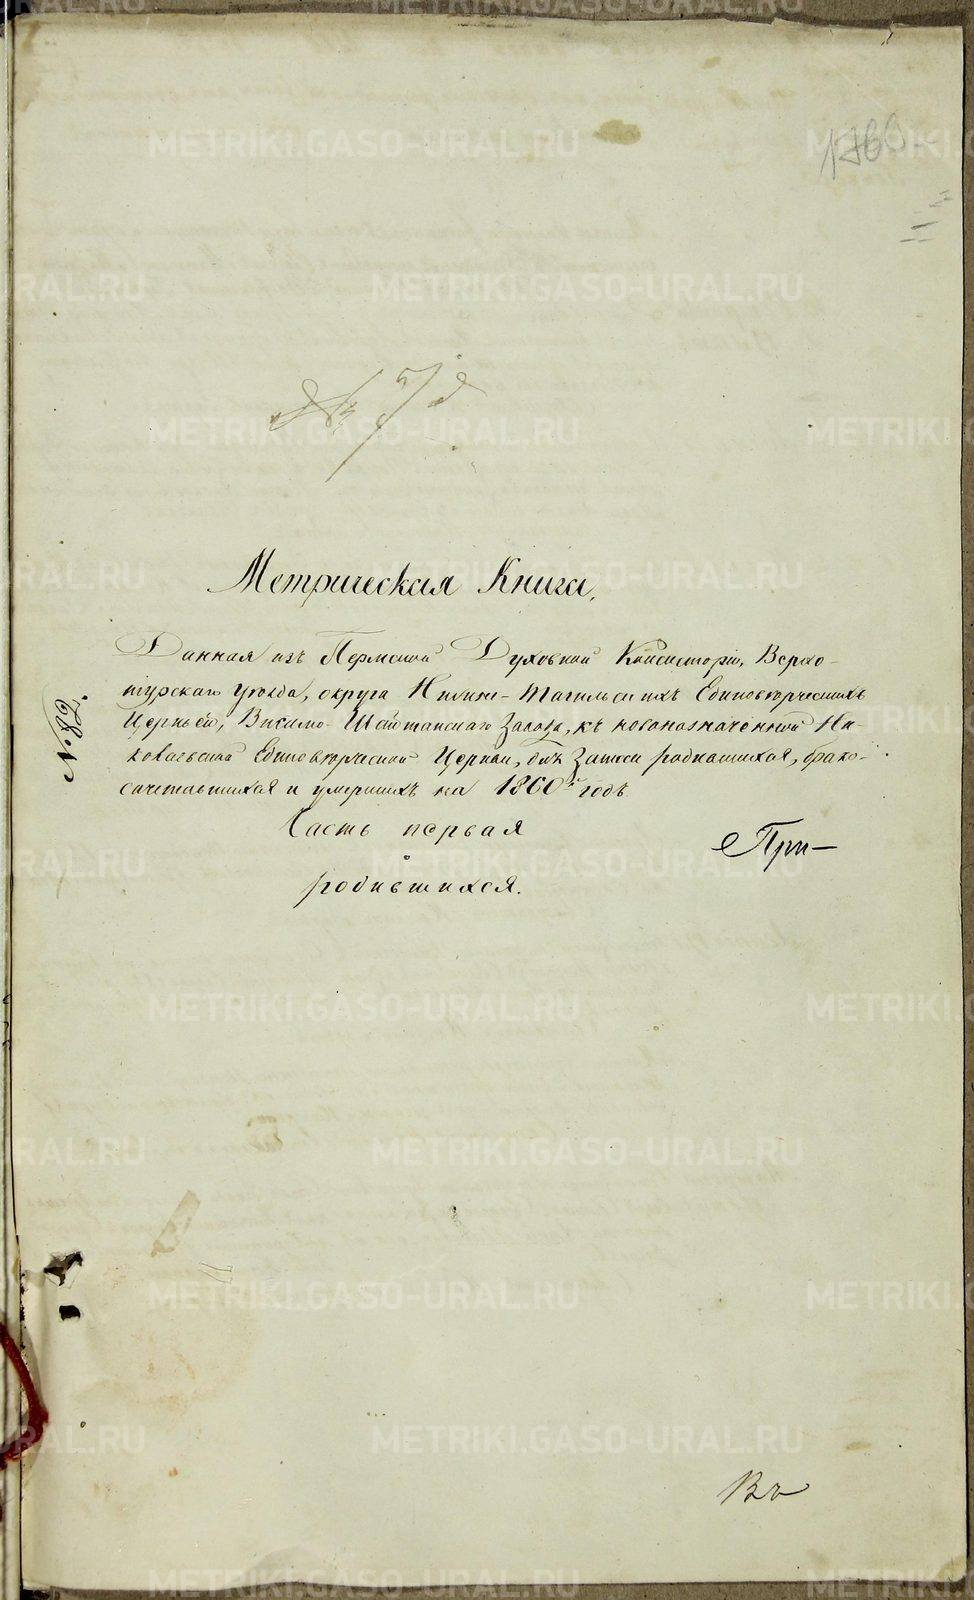 1860
Метрическая Книга,
Данная изъ Пермской Духовной Консисторіи, Верхо-
турскаго Уѣзда, округа Нижне-Тагильскихъ Единовѣрческихъ
Церквей, Висимо-Шайтанскаго Завода, къ новоназначенной Ни-
колаевской Единовѣрческой Церкви, для записи родившихся, брако-
сочетавшихся и умершихъ на 1860й годъ
Часть первая
При-
о
родившихся.
№ 82.
Въ
METRIKI.GASO-URAL.RU